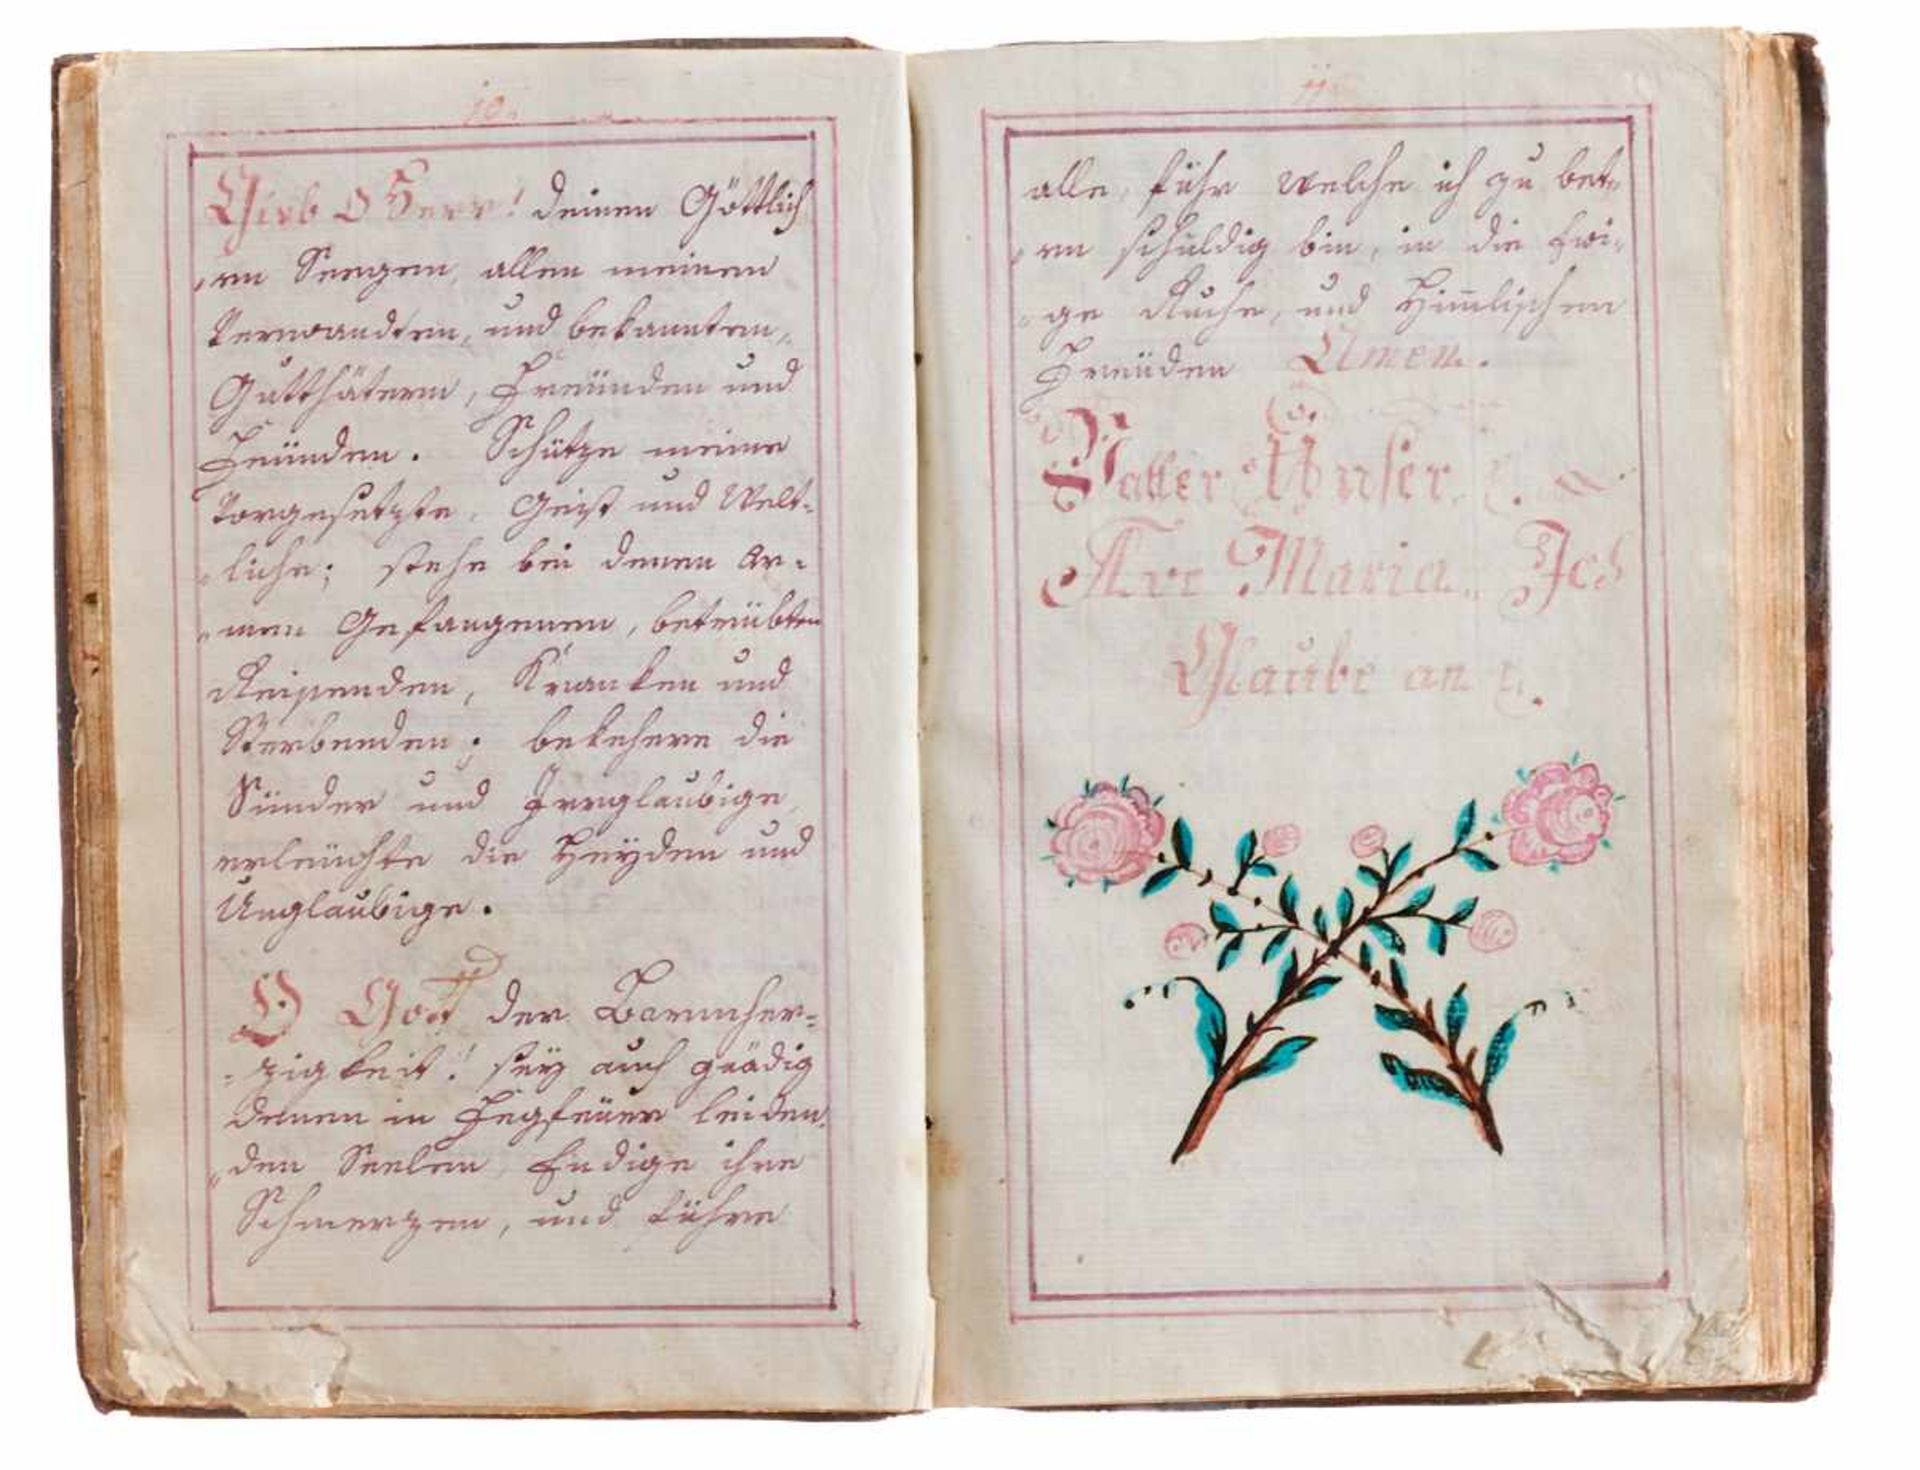 10.
Gieb O Herr! deinen Göttlich
„en Seegen, allen meinen
Verwandten, und bekannten,
Gutthätern, Freünden und
Feünden. Schütze meine
Vorgesetzte, Geist und Welt-
„liche; stehe bei denen Ar-
„men Gefangenen, betrübten
Reisenden, Kranken und
Sterbenden; bekehere die
Sünder und Irrglaubige,
erleüchte die Heÿden und
Unglaubige.
O Gott der Barmher-
-zigkeit! seÿ auch gnädig
denen in Fegfeüer leiden,
„den Seelen, Endige ihre
Schmerzen, und führe
11
alle, führ welche ich zu bet-
„en schuldig bin, in die Ewi-
„ge Ruhe, und Himlischen
Freüden Amen.
Vatter Unser
Ave Maria. Ich
Glaube an